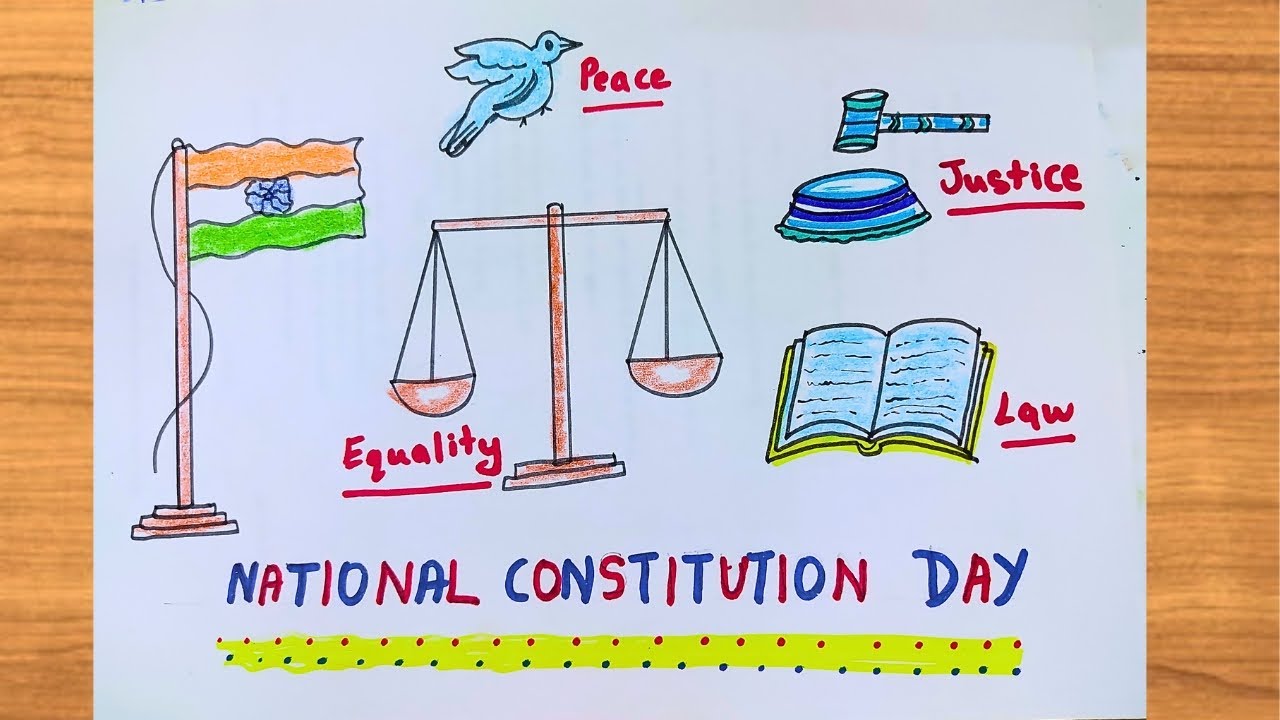 Peace
Justice
Equality
Law
NATIONAL CONSTITUTION DAY